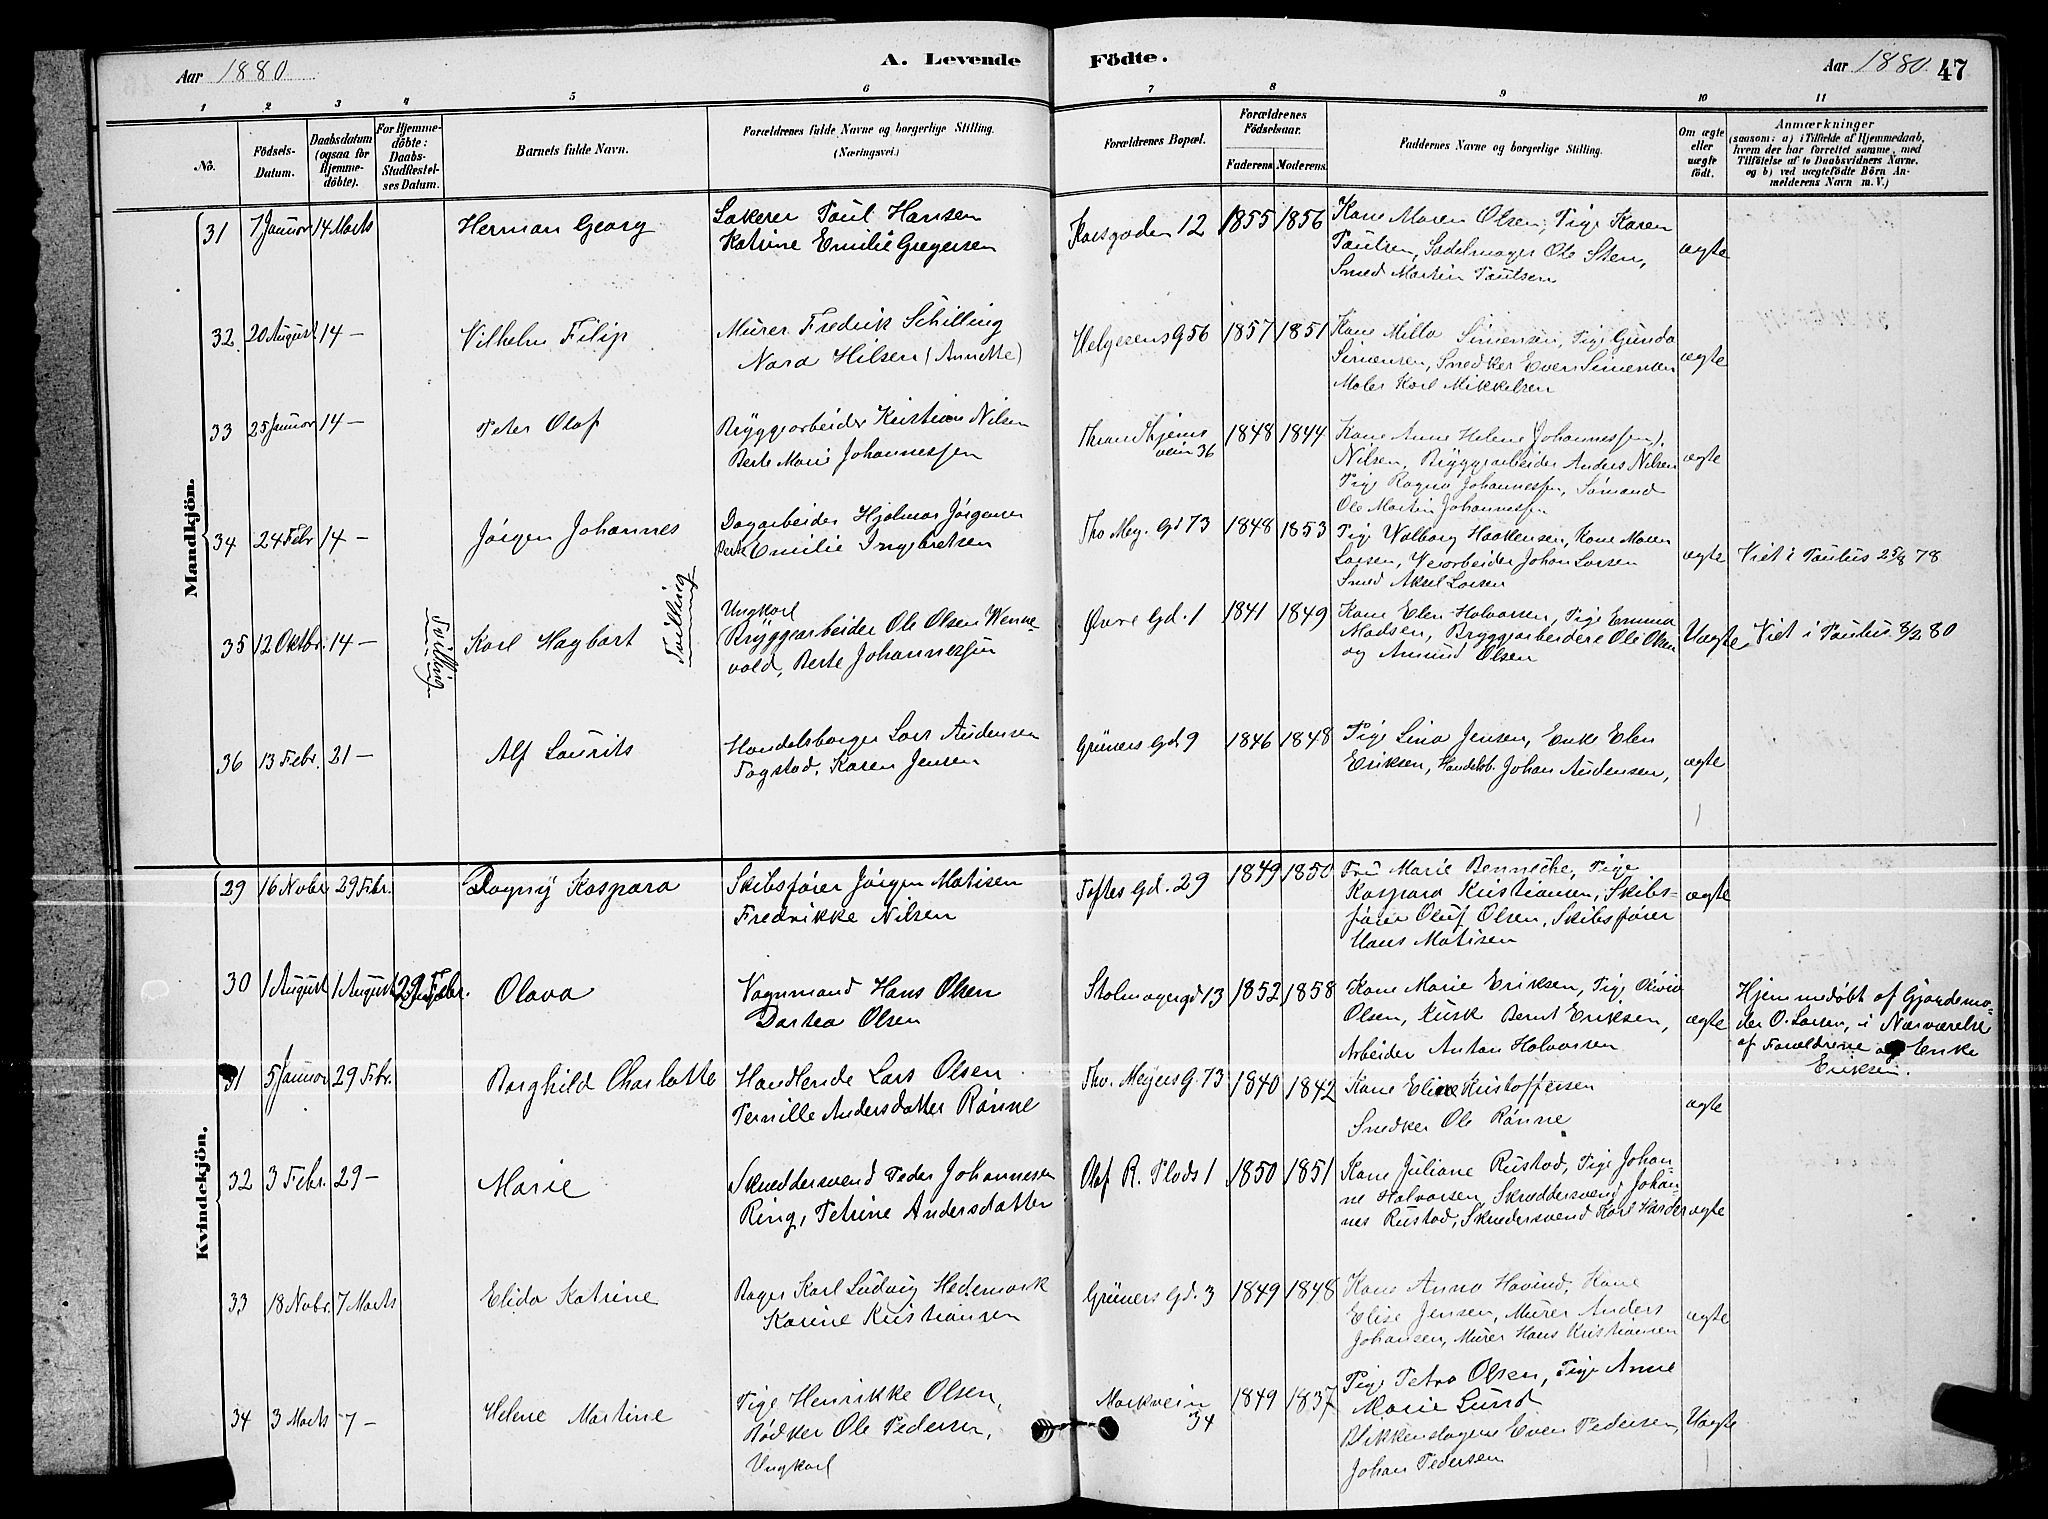 Aar 1880
A. Levende
Födte.
Aar 1880. 47
1 2 3 4 5 6 7 8 9 10 11
No.
Födsels-Datum.
Daabsdatum (ogsaa for Hjemmedöbte).
For Hjemmedöbte: Daabs-Stadfæstelses Datum.
Barnets fulde Navn.
Forældrenes fulde Navne og borgerlige Stilling. (Næringsvei.)
Forældrenes Bopæl.
Forældrenes Födselsaar.
Faderens. Moderens.
Faddernes Navne og borgerlige Stilling.
Om ægte eller uægte födt.
Anmærkninger
(saasom: a) i Tilfælde af Hjemmedaab, hvem der har forrettet samme, med Tilföielse af to Daabsvidners Navne. og b) ved uægtefödte Börn Anmelderens Navn m. V.)
Mandkjön.
31 7 Januar 14 Marts Herman Georg
Lakerer Paul Hansen
Katrine Emilie Gregersen
Korsgaden 12 1855 1856
Kone Maren Olsen, Pige Karen
Paulsen, Sadelmager Ole Sten,
Smed Martin Paulsen
ægte
32. 20 August. 14 — Vilhelm Filip
Murer Fredrik Schilling
Nora Hilsen (Annette)
Helgesens G 56 1857 1851
Kone Milla Simensen, Pige Gunda
Simensen, Snedker Even Simensen
Maler Karl Mikkelsen
ægte
33 25 Januar 14 — Peter Olaf
Bryggearbeider Kristian Nilsen
Berte Marie Johannessen
Throndhjems
vein 36
1848 1844
Kone Anne Helene (Johannessen),
Nilsen, Bryggearbeider Anders Nilsen
Pige Ragna Johannessen, Sömand
Ole Martin Johannessen
ægte
34 24 Febr 14 — Jørgen Johannes
Dagarbeider Hjalmar Jørgensen
Berte Emilie Ingebretsen
Tho Mey. Gd 73 1848 1853
Pige Valborg Haakensen, Kone Maren
Larsen, Veiarbeider Johan Larsen
Smed Aksel Larsen
ægte Viet i Paulus 25/8 78
35 12 Oktbr. 14 — Tvilling Karl Hagbart Tvilling
Ungkarl
Bryggearbeider Ole Olsen Wenne-
vold, Berte Johannessen
Øvre Gd. 1 1841 1849
Kone Elen Halvorsen, Pige Emma
Madsen, Bryggearbeidere Ole Olsen
og Amund Olsen
Uægte Viet i Paulus 8/2 80
36 13 Febr. 21 — Alf Laurits
Handelsborger Lars Audensen
Fogstad, Karen Jensen
Grüners Gd 9 1846 1848
Pige Lina Jensen, Enke Elen
Eriksen, Handelsb. Johan Audensen,
ægte
Kvindekjön.
29 16 Novbr 29 Febr. Dagny Kaspara
Skibsfører Jörgen Matisen
Fredrikke Nilsen
Toftes Gd. 29 1849 1850
Fru Marie Benneche, Pige
Kaspara Kristiansen, Skibs-
fører Oluf Olsen, Skibsfører
Hans Matisen
ægte
30 1 August 1 August 29 Febr. Olava
Vognmand Hans Olsen
Dortea Olsen
Stolmagergd 13 1852 1858
Kone Marie Eriksen, Pige
Olsen, Kusk Bernt Eriksen,
Arbeider Anton Halvorsen
ægte
Hjemmedöbt af Gjordemo-
der O. Larsen, i Nærværelse
af Forældrene og Enke
Eriksen.
31 5 Januar 29 Febr. Borghild Charlotte
Handlende Lars Olsen
Pernille Andersdatter Rönne
Thv. Meyers G. 73 1840 1842
Kone Eline Kristoffersen
Snedker Ole Rönne
ægte
32 3 Febr. 29 — Marie
Skræddersvend Peder Johannesen
Ring, Petrine Andersdatter
Olaf R. Plads 1 1850 1851
Kone Juliane Rustad, Pige Johan-
ne Halvorsen, Skræddersvend Johan-
nes Rustad, Skræddersvend Karl Harder
ægte
33 18 Novbr. 7 Marts Elida Katrine
Bager Karl Ludvig Hedemark
Karine Kristiansen
Grüners Gd. 3 1849 1848
Kone Anna Havind, Kone
Elise Jensen, Murer Anders
Johansen, Murer Hans Kristiansen
ægte
34 3 Marts 7 — Helene Martine
Pige Henrikke Olsen,
Bödker Ole Pedersen,
Ungkarl
Markvein
34
1849 1837
Pige Petra Olsen, Pige Anne
Marie Lund
Blikkenslagere Even Pedersen,
Johan Pedersen
Uægte